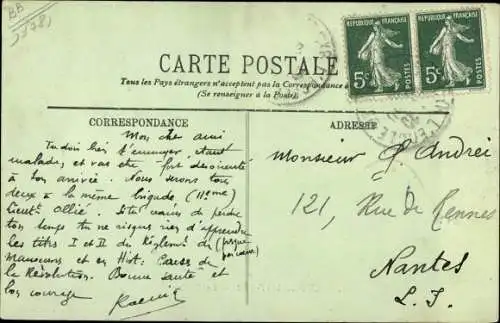 BB
CARTE POSTALE
Tous les Pays étrangers n'acceptent pas la Correspondance
(Se renseigner à la Poste)
RÉPUBLIQUE FRANÇAISE
5c
POSTES
RÉPUBLIQUE FRANÇAISE
5c
POSTES
CORRESPONDANCE
Mon cher ami
Tu dois bien t'ennuyer étant
malade, et vas être fort
à ton arrivée. Nous serons tous
deux à la même brigade, (11eme)
Lieut. Ollié. Si tu viens de perdre
ton temps tu ne risques rien d'apprendre
les titres I et II du Réglemt de
Manœuvres et en Hist: Causes de
la Révolution. Bonne santé et
bon courage
ADRESSE
Monsieur Andrei
121, Rue de Rennes
Nantes
L. I.